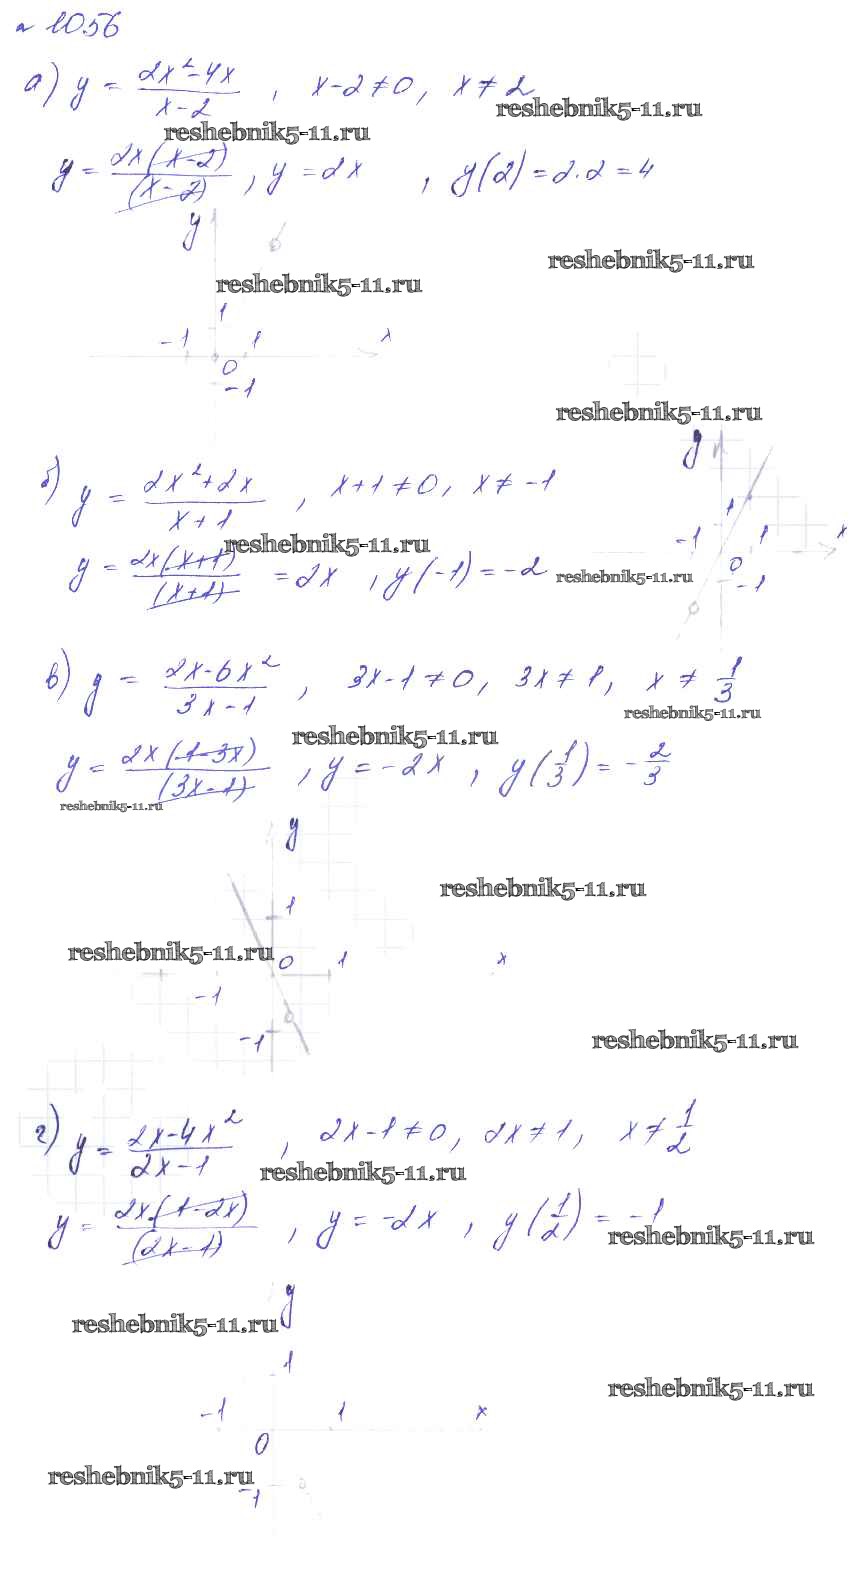 № 1056
а) y = (2x² - 4x)/(x - 2), x - 2 ≠ 0, x ≠ 2
reshebnik5-11.ru
reshebnik5-11.ru
y = 2x(x-2)/(x-2), y = 2x, y(2) = 2·2 = 4
y
reshebnik5-11.ru
reshebnik5-11.ru
1
-1 1 x
0
-1
reshebnik5-11.ru
y
б) y = (2x² + 2x)/(x + 1), x + 1 ≠ 0, x ≠ -1
1
-1 1 x
reshebnik5-11.ru
y = 2x(x+1)/(x+1) = 2x, y(-1) = -2
0
reshebnik5-11.ru
-1
в) y = (2x - 6x²)/(3x - 1), 3x - 1 ≠ 0, 3x ≠ 1, x ≠ 1/3
reshebnik5-11.ru
reshebnik5-11.ru
y = 2x(1-3x)/(3x-1), y = -2x, y(1/3) = -2/3
reshebnik5-11.ru
y
reshebnik5-11.ru
1
reshebnik5-11.ru
0 1 x
-1
-1
reshebnik5-11.ru
г) y = (2x - 4x²)/(2x - 1), 2x - 1 ≠ 0, 2x ≠ 1, x ≠ 1/2
reshebnik5-11.ru
y = 2x·(1-2x)/(2x-1), y = -2x, y(1/2) = -1
reshebnik5-11.ru
y
reshebnik5-11.ru
1
reshebnik5-11.ru
-1 1 x
0
reshebnik5-11.ru
-1